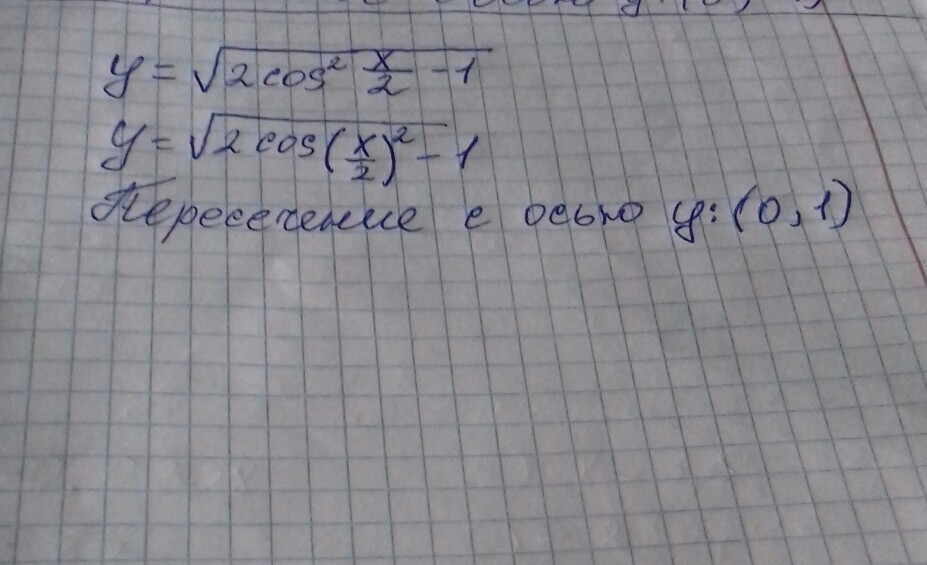 y = √(2 cos² x/2 - 1)
y = √(2 cos (x/2)² - 1)
Пересечение с осью y: (0, 1)